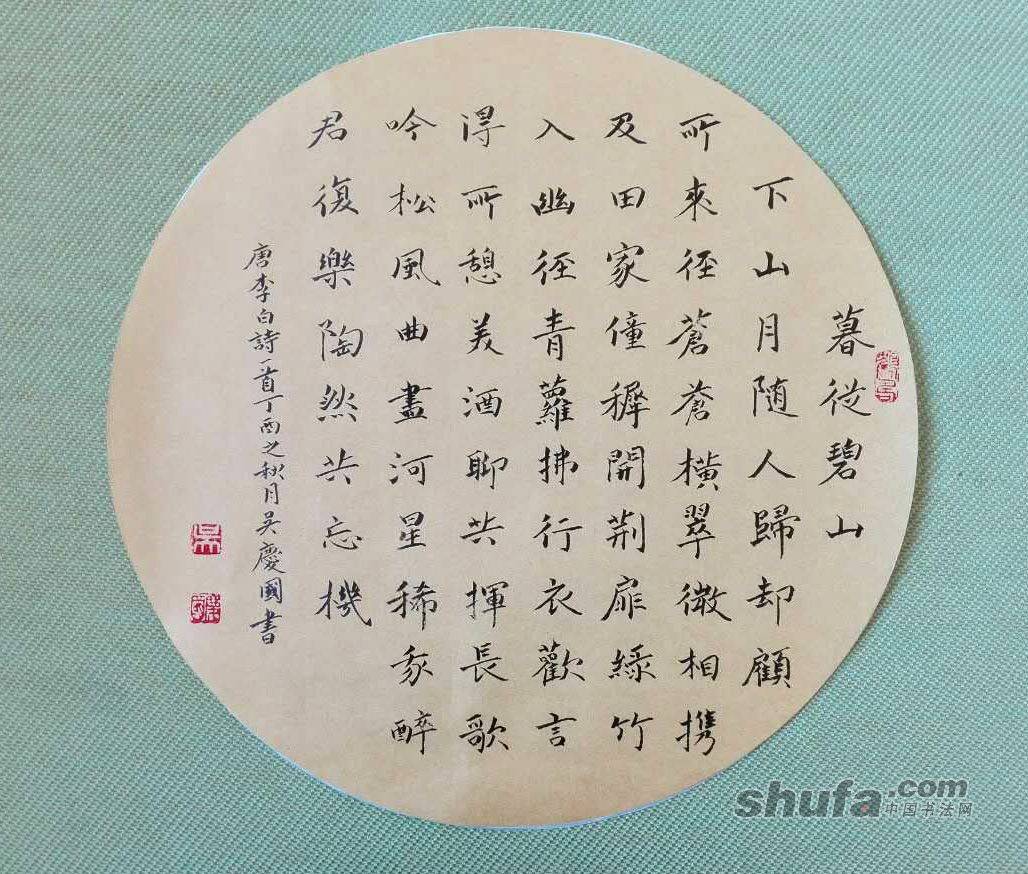 暮從碧山
下山月随人歸却顧
所來徑蒼蒼橫翠微相携
及田家僮穉開荆扉緑竹
入幽徑青蘿拂行衣歡言
得所憩美酒聊共揮長歌
吟松風曲盡河星稀我醉
君復樂陶然共忘機
唐李白詩一首丁酉之秋月吴慶國書
吴
shufa.com
中国书法网